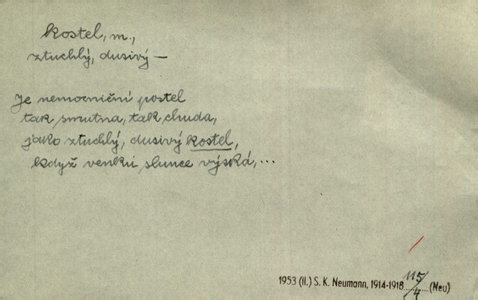 kostel, m.,
ztuchlý, dusivý —
Je nemocniční postel
tak smutna, tak chuda,
jako ztuchlý, dusivý kostel,
když venku slunce výská,...
1953 (II.) S. K. Neumann, 1914-1918 115/4 (Neu)